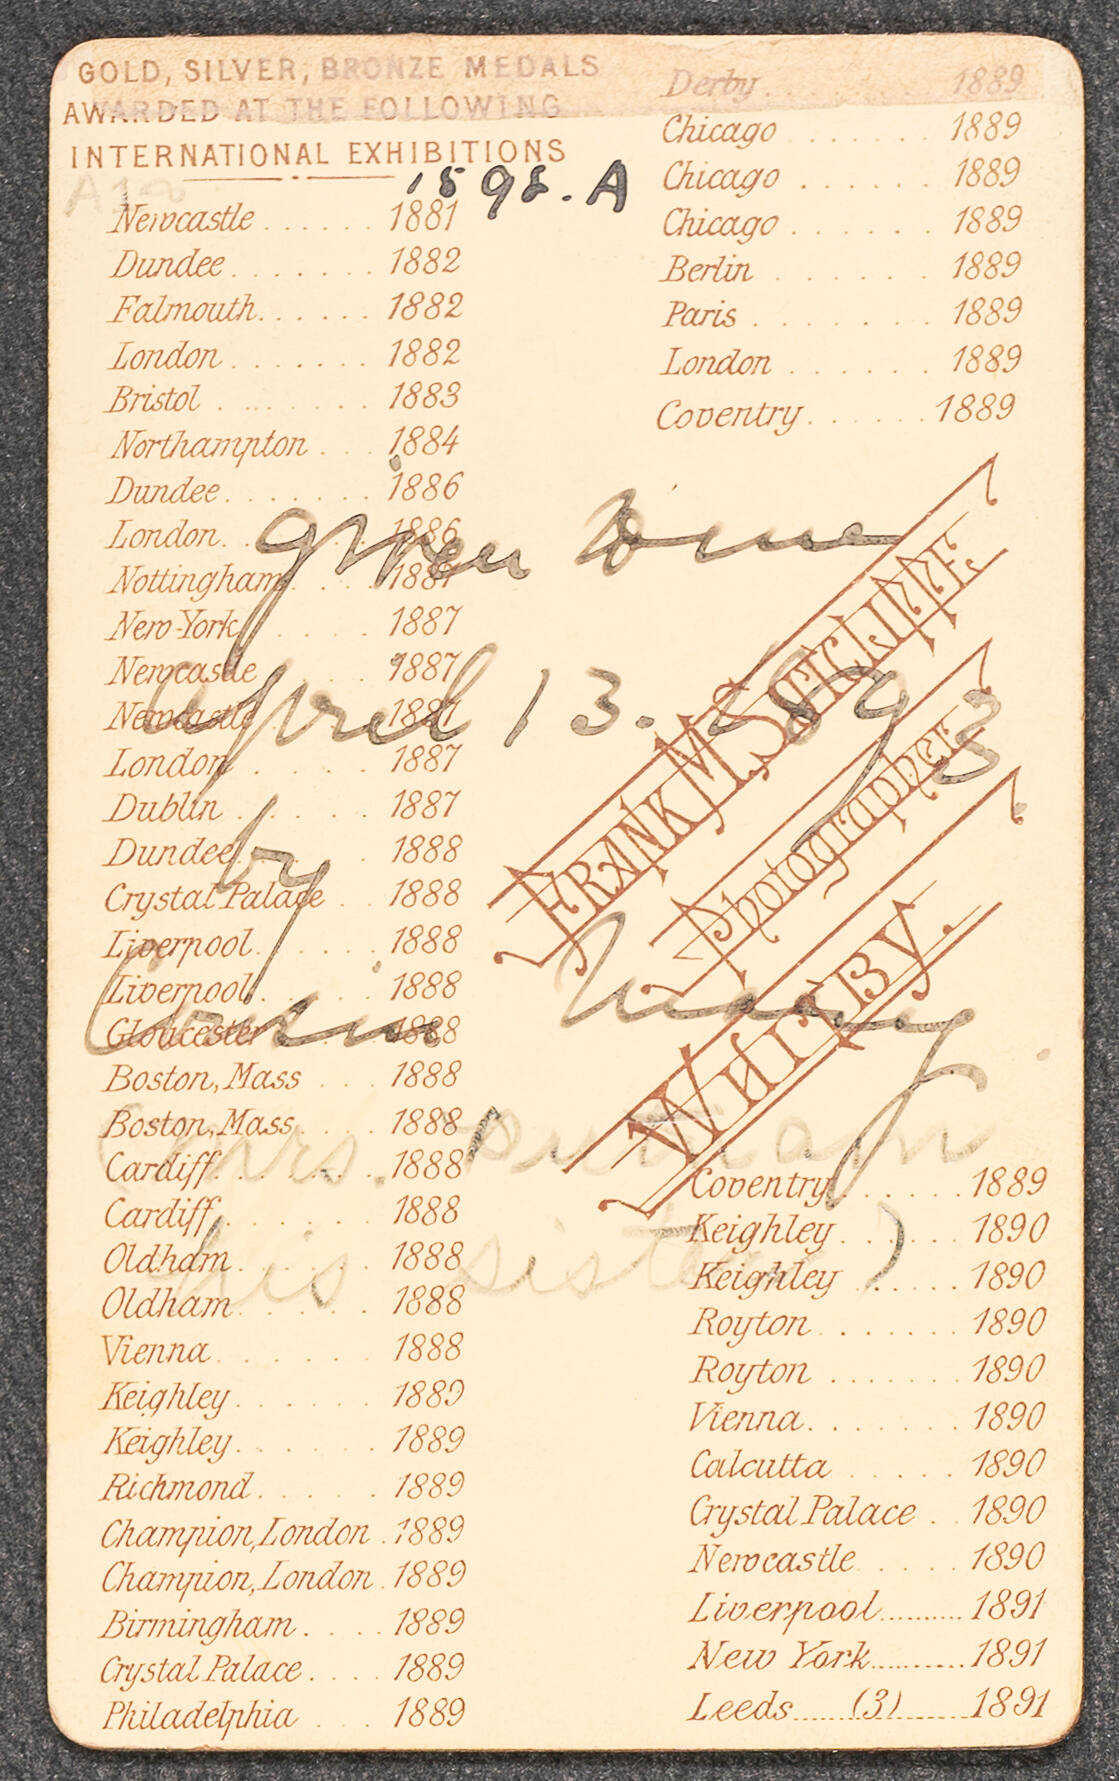 GOLD, SILVER, BRONZE MEDALS
AWARDED AT THE FOLLOWING
INTERNATIONAL EXHIBITIONS
1898.A
Newcastle ...... 1881
Dundee ....... 1882
Falmouth ...... 1882
London ....... 1882
Bristol ....... 1883
Northampton ... 1884
Dundee ....... 1886
London ....... 1886
Nottingham .... 1887
New-York ..... 1887
Newcastle ..... 1887
Newcastle ..... 1887
London ...... 1887
Dublin ....... 1887
Dundee ...... 1888
Crystal Palace .. 1888
Liverpool ...... 1888
Liverpool ...... 1888
Gloucester .... 1888
Boston, Mass ... 1888
Boston, Mass .... 1888
Cardiff ....... 1888
Cardiff ....... 1888
Oldham ...... 1888
Oldham ...... 1888
Vienna ....... 1888
Keighley ...... 1889
Keighley ...... 1889
Richmond ..... 1889
Champion, London . 1889
Champion, London . 1889
Birmingham .... 1889
Crystal Palace .... 1889
Philadelphia ... 1889
Derby ........ 1889
Chicago ....... 1889
Chicago ...... 1889
Chicago ...... 1889
Berlin ....... 1889
Paris ........ 1889
London ...... 1889
Coventry ...... 1889
FRANK M. SUTCLIFFE.
Photographer
WHITBY.
Coventry ...... 1889
Keighley ...... 1890
Keighley ..... 1890
Royton ....... 1890
Royton ....... 1890
Vienna ....... 1890
Calcutta ..... 1890
Crystal Palace .. 1890
Newcastle ..... 1890
Liverpool .......... 1891
New York .......... 1891
Leeds ...... (3) ....... 1891
given to me
April 13. 1893
by
Cousin Mary
(Mrs. Putnam
his sister)